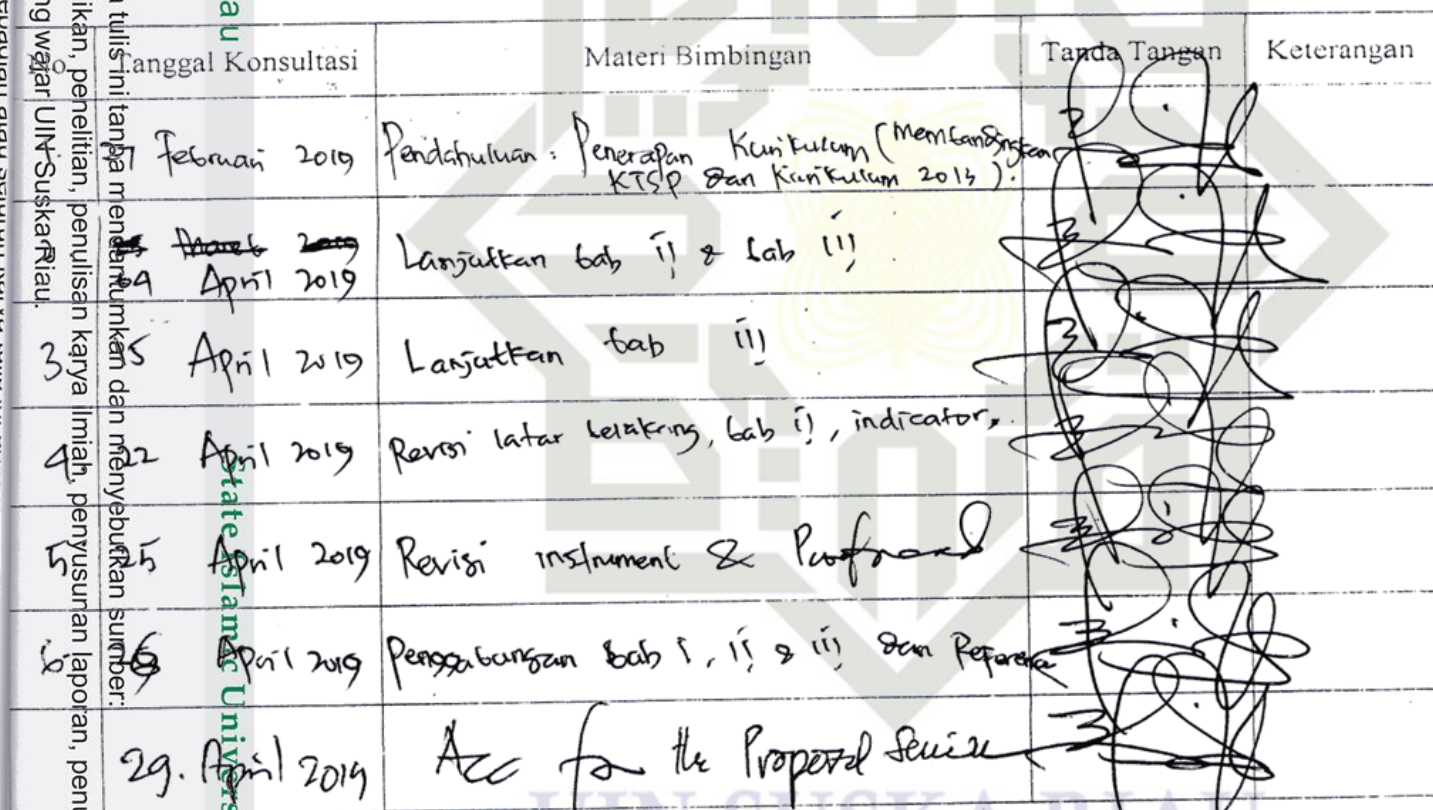 No Tanggal Konsultasi Materi Bimbingan Tanda Tangan Keterangan
Februari 2019 Pendahuluan : Penerapan Kurikulum (Membandingkan
KTSP dan Kurikulum 2013).
Maret 2019
April 2019 Lanjutkan bab ii & bab iii
3 15 April 2019 Lanjutkan bab iii
4 22 April 2019 Revisi latar belakang, bab ii, indicator,
5 25 April 2019 Revisi instrument & Proofread
6 April 2019 Penggabungan bab i, ii & iii dan Reference
29. April 2019 Acc for the Proposal
au
State Islamic Univers
tulis ini tanpa mencantumkan dan menyebutkan sumber:
ikan, penelitian, penulisan karya ilmiah, penyusunan laporan, penu
ng wajar UIN Suska Riau.
UIN SUSKA RIAU